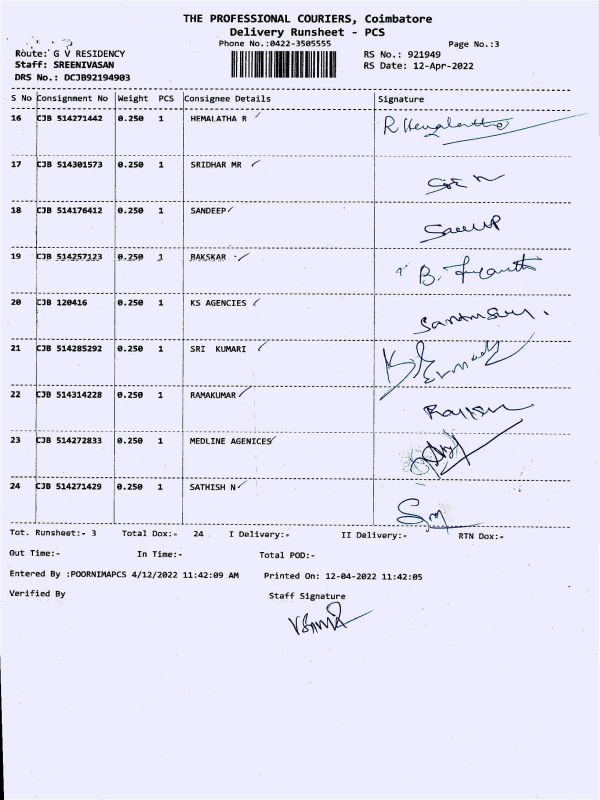 THE PROFESSIONAL COURIERS, Coimbatore
Delivery Runsheet - PCS
Phone No.:0422-3505555
Page No.:3
Route: G V RESIDENCY
RS No.: 921949
Staff: SREENIVASAN
RS Date: 12-Apr-2022
DRS No.: DCJB92194903
S No Consignment No Weight PCS Consignee Details Signature
16 CJB 514271442 0.250 1 HEMALATHA R R Hemalatha
17 CJB 514301573 0.250 1 SRIDHAR MR
18 CJB 514176412 0.250 1 SANDEEP
19 CJB 514257123 0.250 1 BAKSKAR B.
20 CJB 120416 0.250 1 KS AGENCIES
21 CJB 514285292 0.250 1 SRI KUMARI
22 CJB 514314228 0.250 1 RAMAKUMAR
23 CJB 514272833 0.250 1 MEDLINE AGENICES
24 CJB 514271429 0.250 1 SATHISH N
Tot. Runsheet:- 3 Total Dox:- 24 I Delivery:- II Delivery:- RTN Dox:-
Out Time:- In Time:- Total POD:-
Entered By :POORNIMAPCS 4/12/2022 11:42:09 AM Printed On: 12-04-2022 11:42:05
Verified By Staff Signature